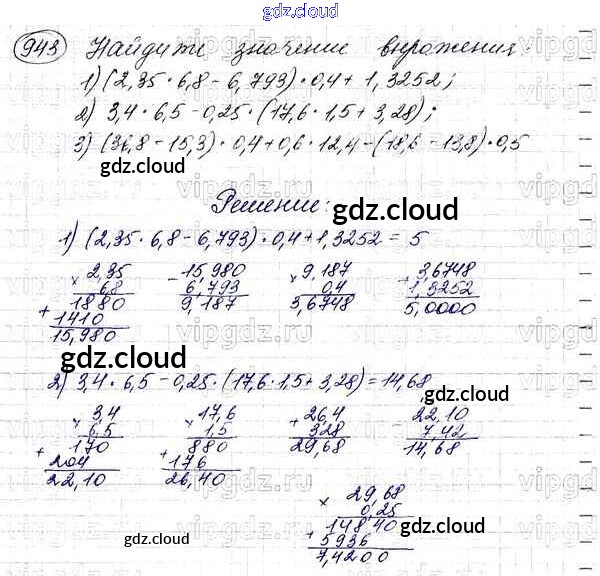 gdz.cloud
943 Найдите значение выражения:
1) (2,35 · 6,8 − 6,793) · 0,4 + 1,3252;
2) 3,4 · 6,5 − 0,25 · (17,6 · 1,5 + 3,28);
3) (36,8 − 15,3) · 0,4 + 0,6 · 12,4 − (18,6 − 13,8) · 0,5
gdz.cloud
gdz.cloud
Решение:
gdz.cloud
1) (2,35 · 6,8 − 6,793) · 0,4 + 1,3252 = 5
× 2,35 − 15,980 × 9,187 + 3,6748
6,8 6,793 0,4 1,3252
1880 9,187 3,6748 5,0000
+ 1410
15,980
gdz.cloud
gdz.cloud
2) 3,4 · 6,5 − 0,25 · (17,6 · 1,5 + 3,28) = 14,68
gdz.cloud
× 3,4 × 17,6 + 26,4 − 22,10
6,5 1,5 328 7,42
170 880 29,68 14,68
+ 204 + 176
22,10 26,40
gdz.cloud
× 29,68
0,25
14840
+ 5936
7,4200
gdz.cloud
gdz.cloud
vipgdz.ru